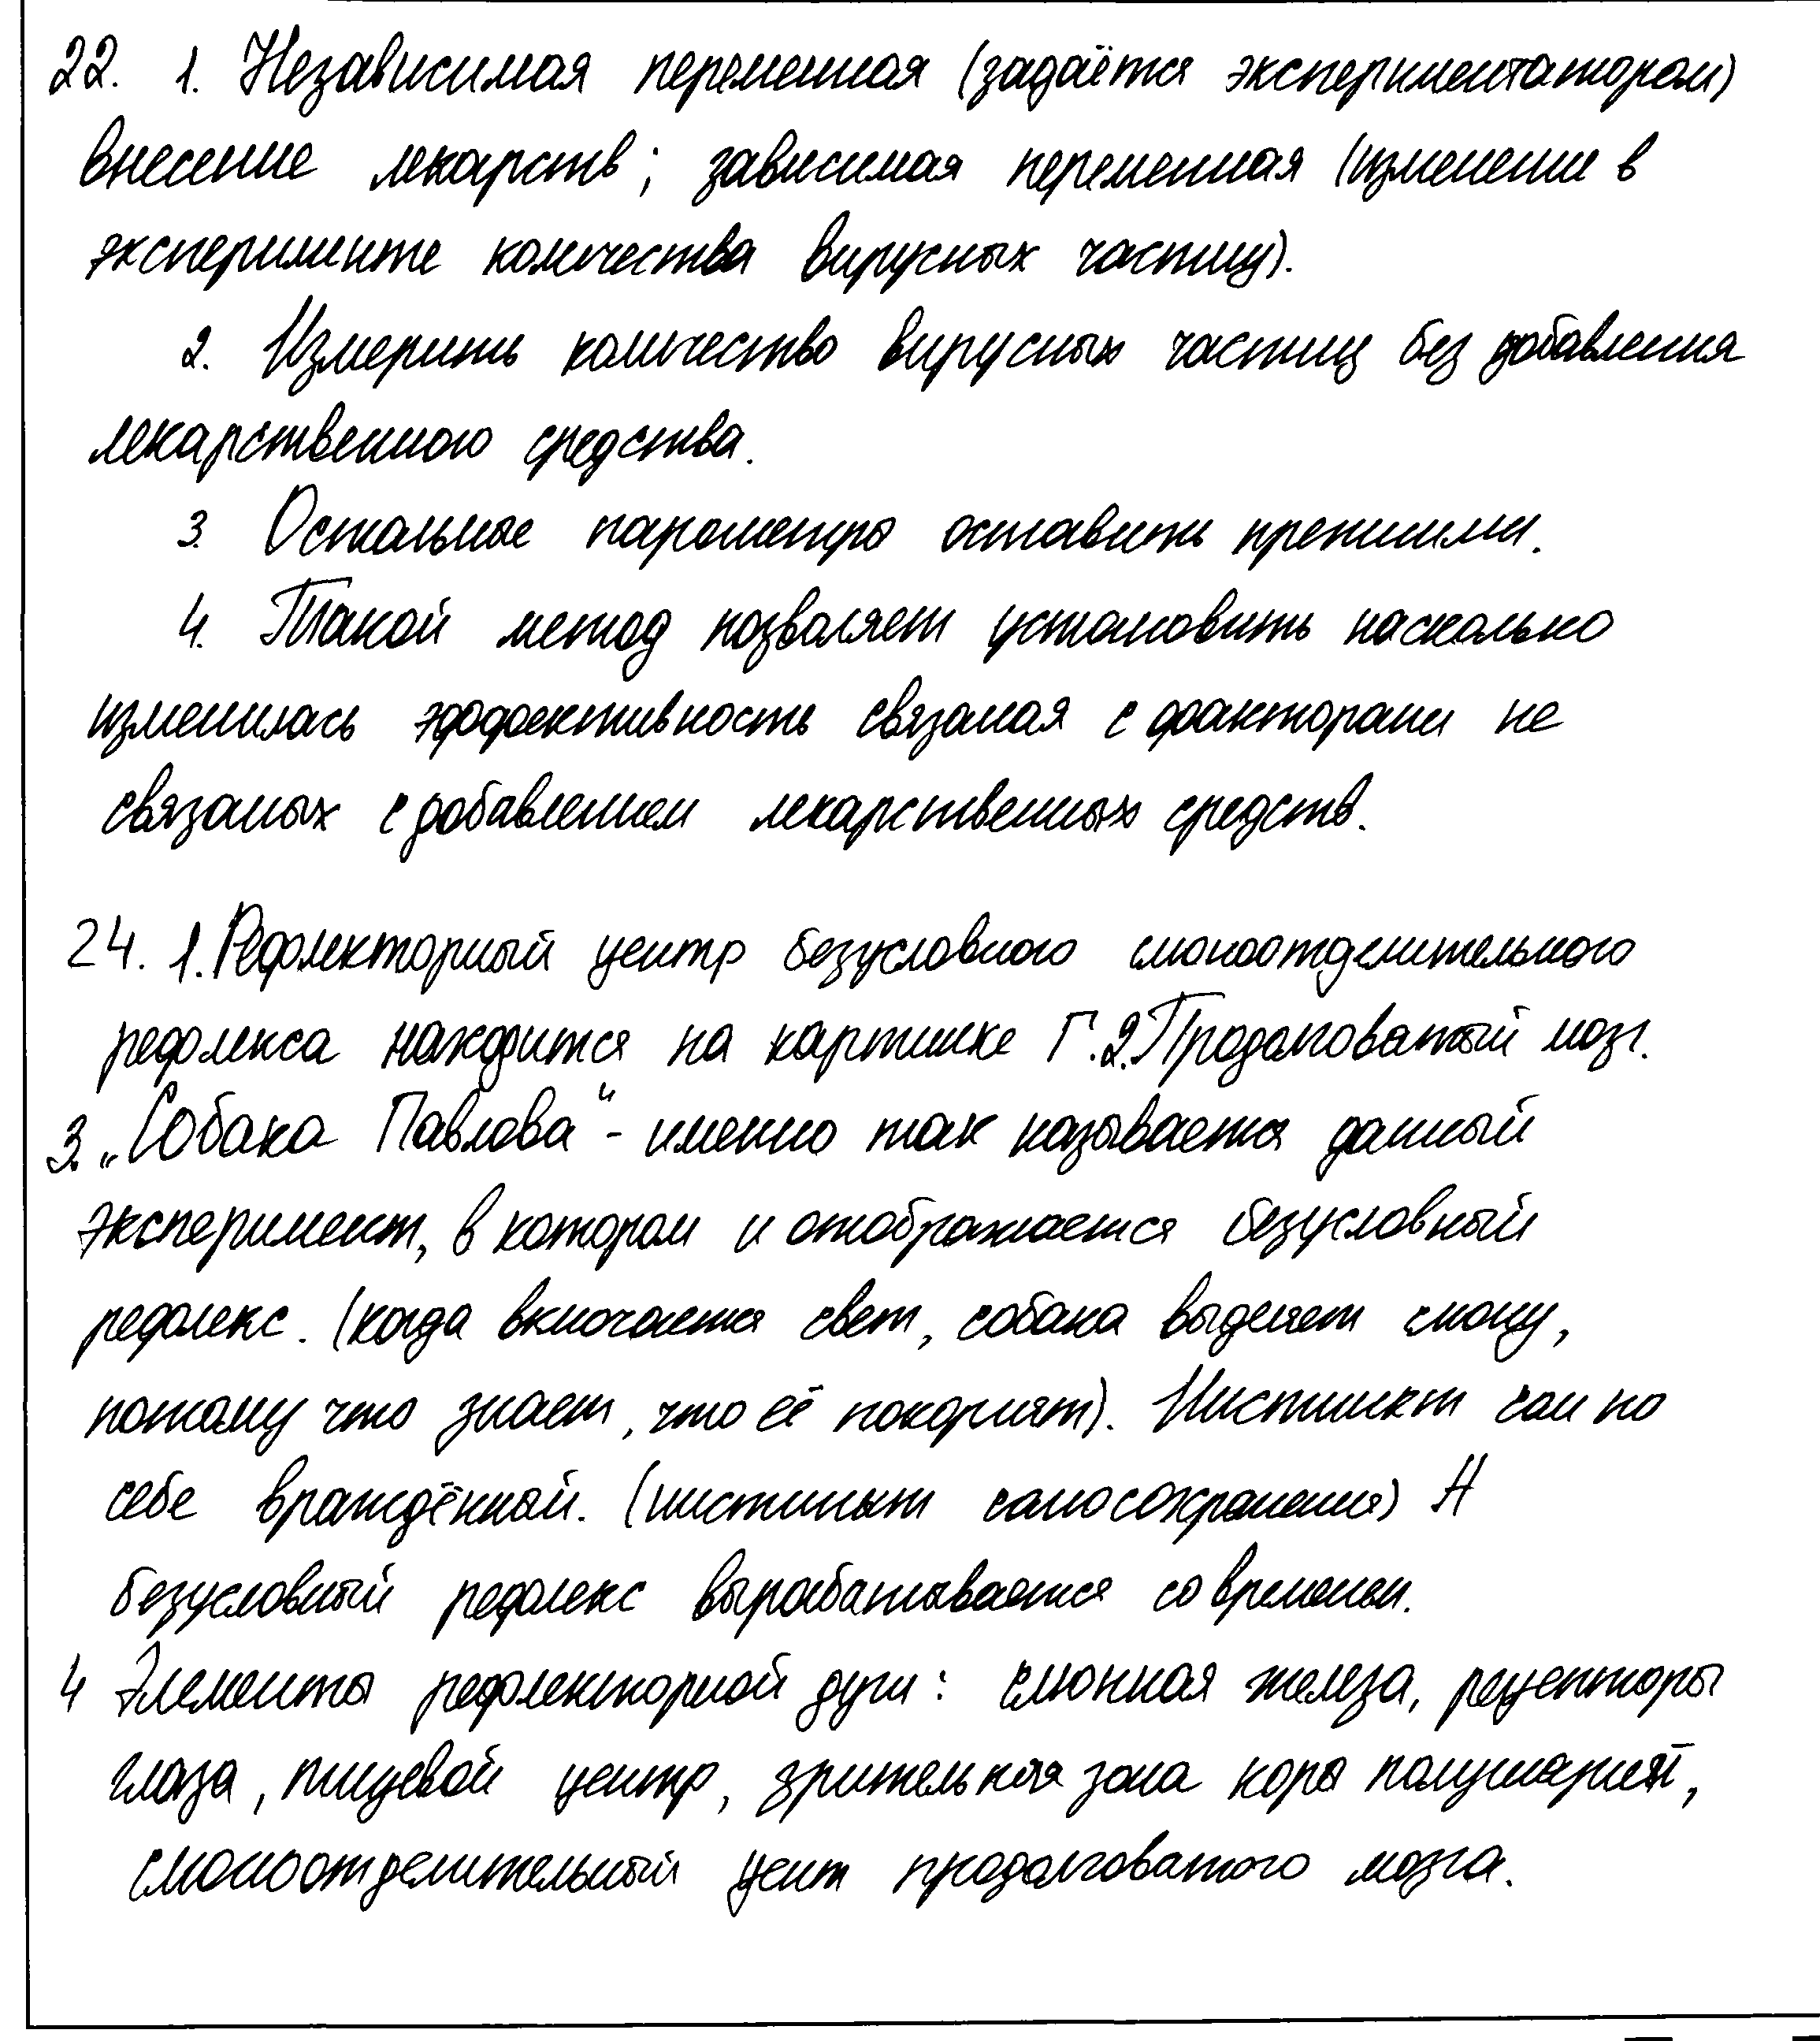 22. 1. Независимая переменная (задаётся экспериментатором)
внесение лекарств; зависимая переменная (изменение в
эксперименте количества вирусных частиц).
2. Измерить количество вирусных частиц без добавления
лекарственного средства.
3. Остальные параметры оставить прежними.
4. Такой метод позволяет установить насколько
изменилась эффективность связаная с факторами не
связаных с добавлением лекарственных средств.
24. 1. Рефлекторный центр безусловного слюноотделительного
рефлекса находится на картинке Г. 2. Продолговатый мозг.
3. „Собака Павлова“ - именно так называется данный
эксперимент, в котором и отображается безусловный
рефлекс. (когда включается свет, собака выделяет слюну,
потому что знает, что её покормят). Инстинкт сам по
себе врождённый. (инстинкт самосохранения) А
безусловный рефлекс вырабатывается со временем.
4 Элементы рефлекторной дуги: слюнная железа, рецепторы
глаза, пищевой центр, зрительная зона коры полушарий,
слюноотделительный цент продолговатого мозга.